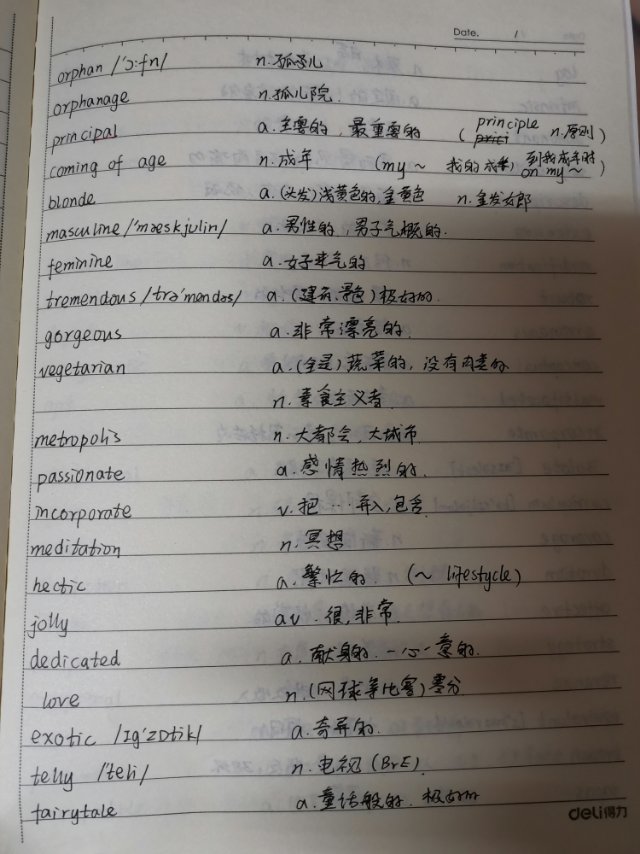 Date. /
orphan /'ɔ:fn/ n.孤儿
orphanage n.孤儿院.
principal a.主要的, 最重要的 ( principle n.原则)
coming of age n.成年 (my~ 我的成年) 到我成年时 on my~)
blonde a.(头发)浅黄色的,金黄色 n.金发女郎
masculine /'mæskjulin/ a.男性的, 男子气概的.
feminine a.女子气的
tremendous /trə'mendəs/ a.( )极好的.
gorgeous a.非常漂亮的.
vegetarian a.(全是)蔬菜的, 没有肉类的
n.素食主义者.
metropolis n.大都会,大城市.
passionate a.感情热烈的.
incorporate v.把…并入,包含.
meditation n.冥想
hectic a.繁忙的 (~ lifestycle)
jolly av.很,非常.
dedicated a.献身的.一心一意的.
love n.(网球等比赛)零分
exotic /Ig'zɒtik/ a.奇异的.
telly /'teli/ n.电视(BrE).
fairytale a.童话般的.极好的
deli得力